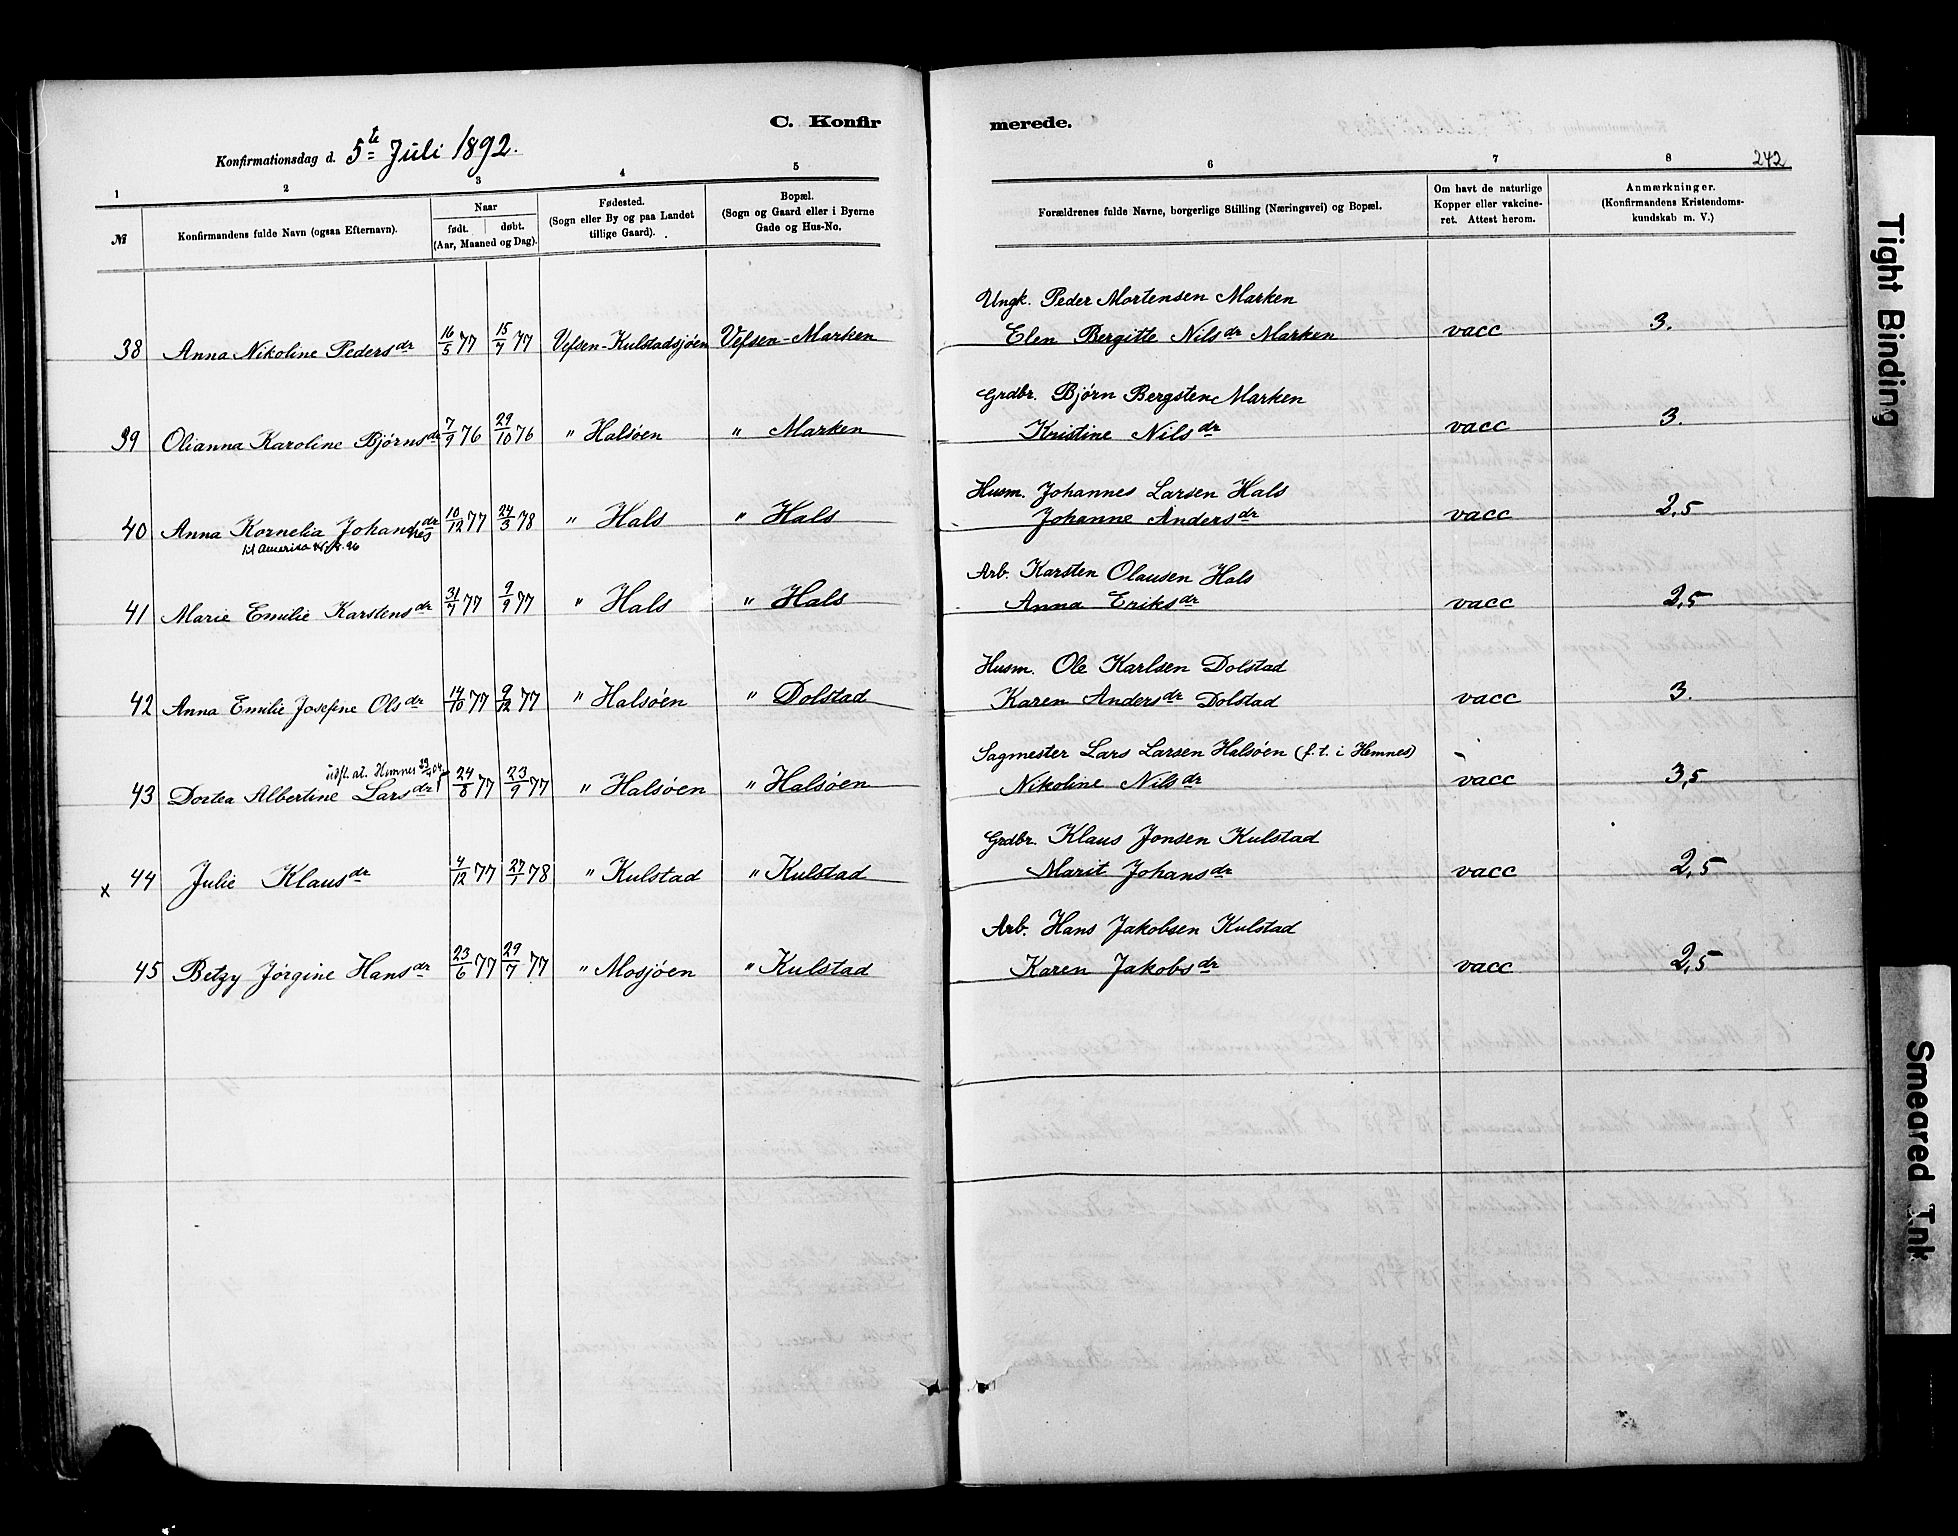 C. Konfirmerede.
Konfirmationsdag d. 5te Juli 1892.
242
1 2 3 4 5 6 7 8
№ Konfirmandens fulde Navn (ogsaa Efternavn). Naar født. døbt. (Aar, Maaned og Dag). Fødested. (Sogn eller By og paa Landet tillige Gaard). Bopæl. (Sogn og Gaard eller i Byerne Gade og Hus-No. Forældrenes fulde Navne, borgerlige Stilling (Næringsvei) og Bopæl. Om havt de naturlige Kopper eller vakcineret. Attest herom. Anmærkninger. (Konfirmandens Kristendomskundskab m. V.)
Ungk. Peder Mortensen Marken
38 Anna Nikoline Pedersdr 16/5 77 15/7 77 Vefsen-Kulstadsjøen Vefsen-Marken Elen Bergitte Nilsdr Marken vacc 3.
Grdbr. Bjørn Bergsten Marken
39 Olianna Karoline Bjørnsdr 7/9 76 29/10 76 " Halsøen " Marken Kristine Nilsdr vacc 3.
Husm. Johannes Larsen Hals
40 Anna Kornelia Johannesdr 10/12 77 24/3 78 " Hals " Hals Johanne Andersdr vacc 2,5
til Amerika
Arb. Karsten Olausen Hals
41 Marie Emilie Karstensdr 31/7 77 9/9 77 " Hals " Hals Anna Eriksdr vacc 2,5
Husm. Ole Karlsen Dolstad
42 Anna Emilie Josefine Olsdr 14/10 77 9/12 77 " Halsøen " Dolstad Karen Andersdr Dolstad vacc 3.
Sagmester Lars Larsen Halsøen (f. t. i Hemnes) -
udfl. at. Hemnes
43 Dortea Albertine Larsdr 24/8 77 23/9 77 " Halsøen " Halsøen Nikoline Nilsdr vacc 3,5
Grdbr. Klaus Jonsen Kulstad
x 44 Julie Klausdr 4/12 77 27/1 78 " Kulstad " Kulstad Marit Johansdr vacc 2,5
Arb. Hans Jakobsen Kulstad
45 Betzy Jørgine Hansdr 23/6 77 29/7 77 " Mosjøen " Kulstad Karen Jakobsdr vacc 2,5
Tight Binding
Smeared Ink